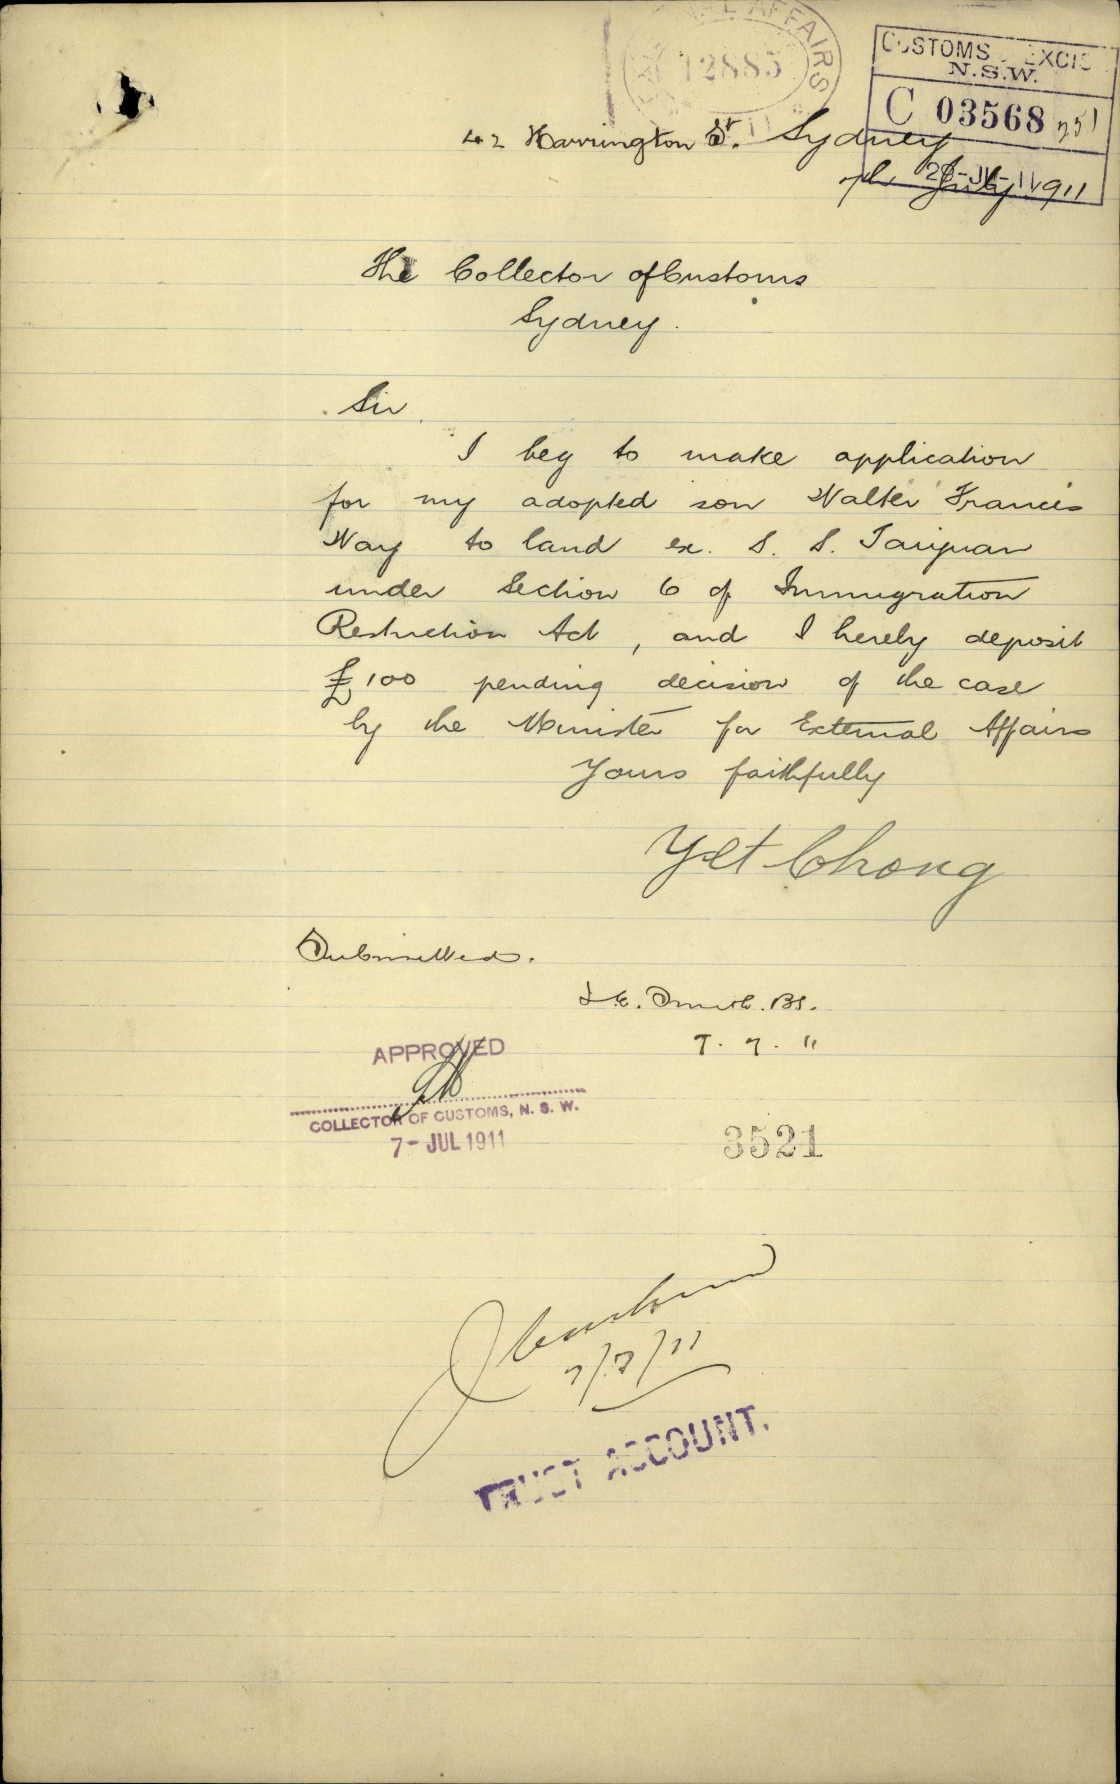 AFFAIRS
12885
CUSTOMS EXCIS
N.S.W.
C 03568
42 Harrington St. Sydney
7th July 1911
The Collector of Customs
Sydney.
Sir
I beg to make application
for my adopted son Walter Francis
Way to land ex. S. S. Taiyuan
under Section 6 of Immigration
Restriction Act, and I hereby deposit
£100 pending decision of the case
by the Minister for External Affairs
Yours faithfully
Yet Chong
Submitted.
Smith. B1.
7. 7. 11
APPROVED
COLLECTOR OF CUSTOMS, N. S. W.
7-JUL 1911
3521
7/7/11
TRUST ACCOUNT.